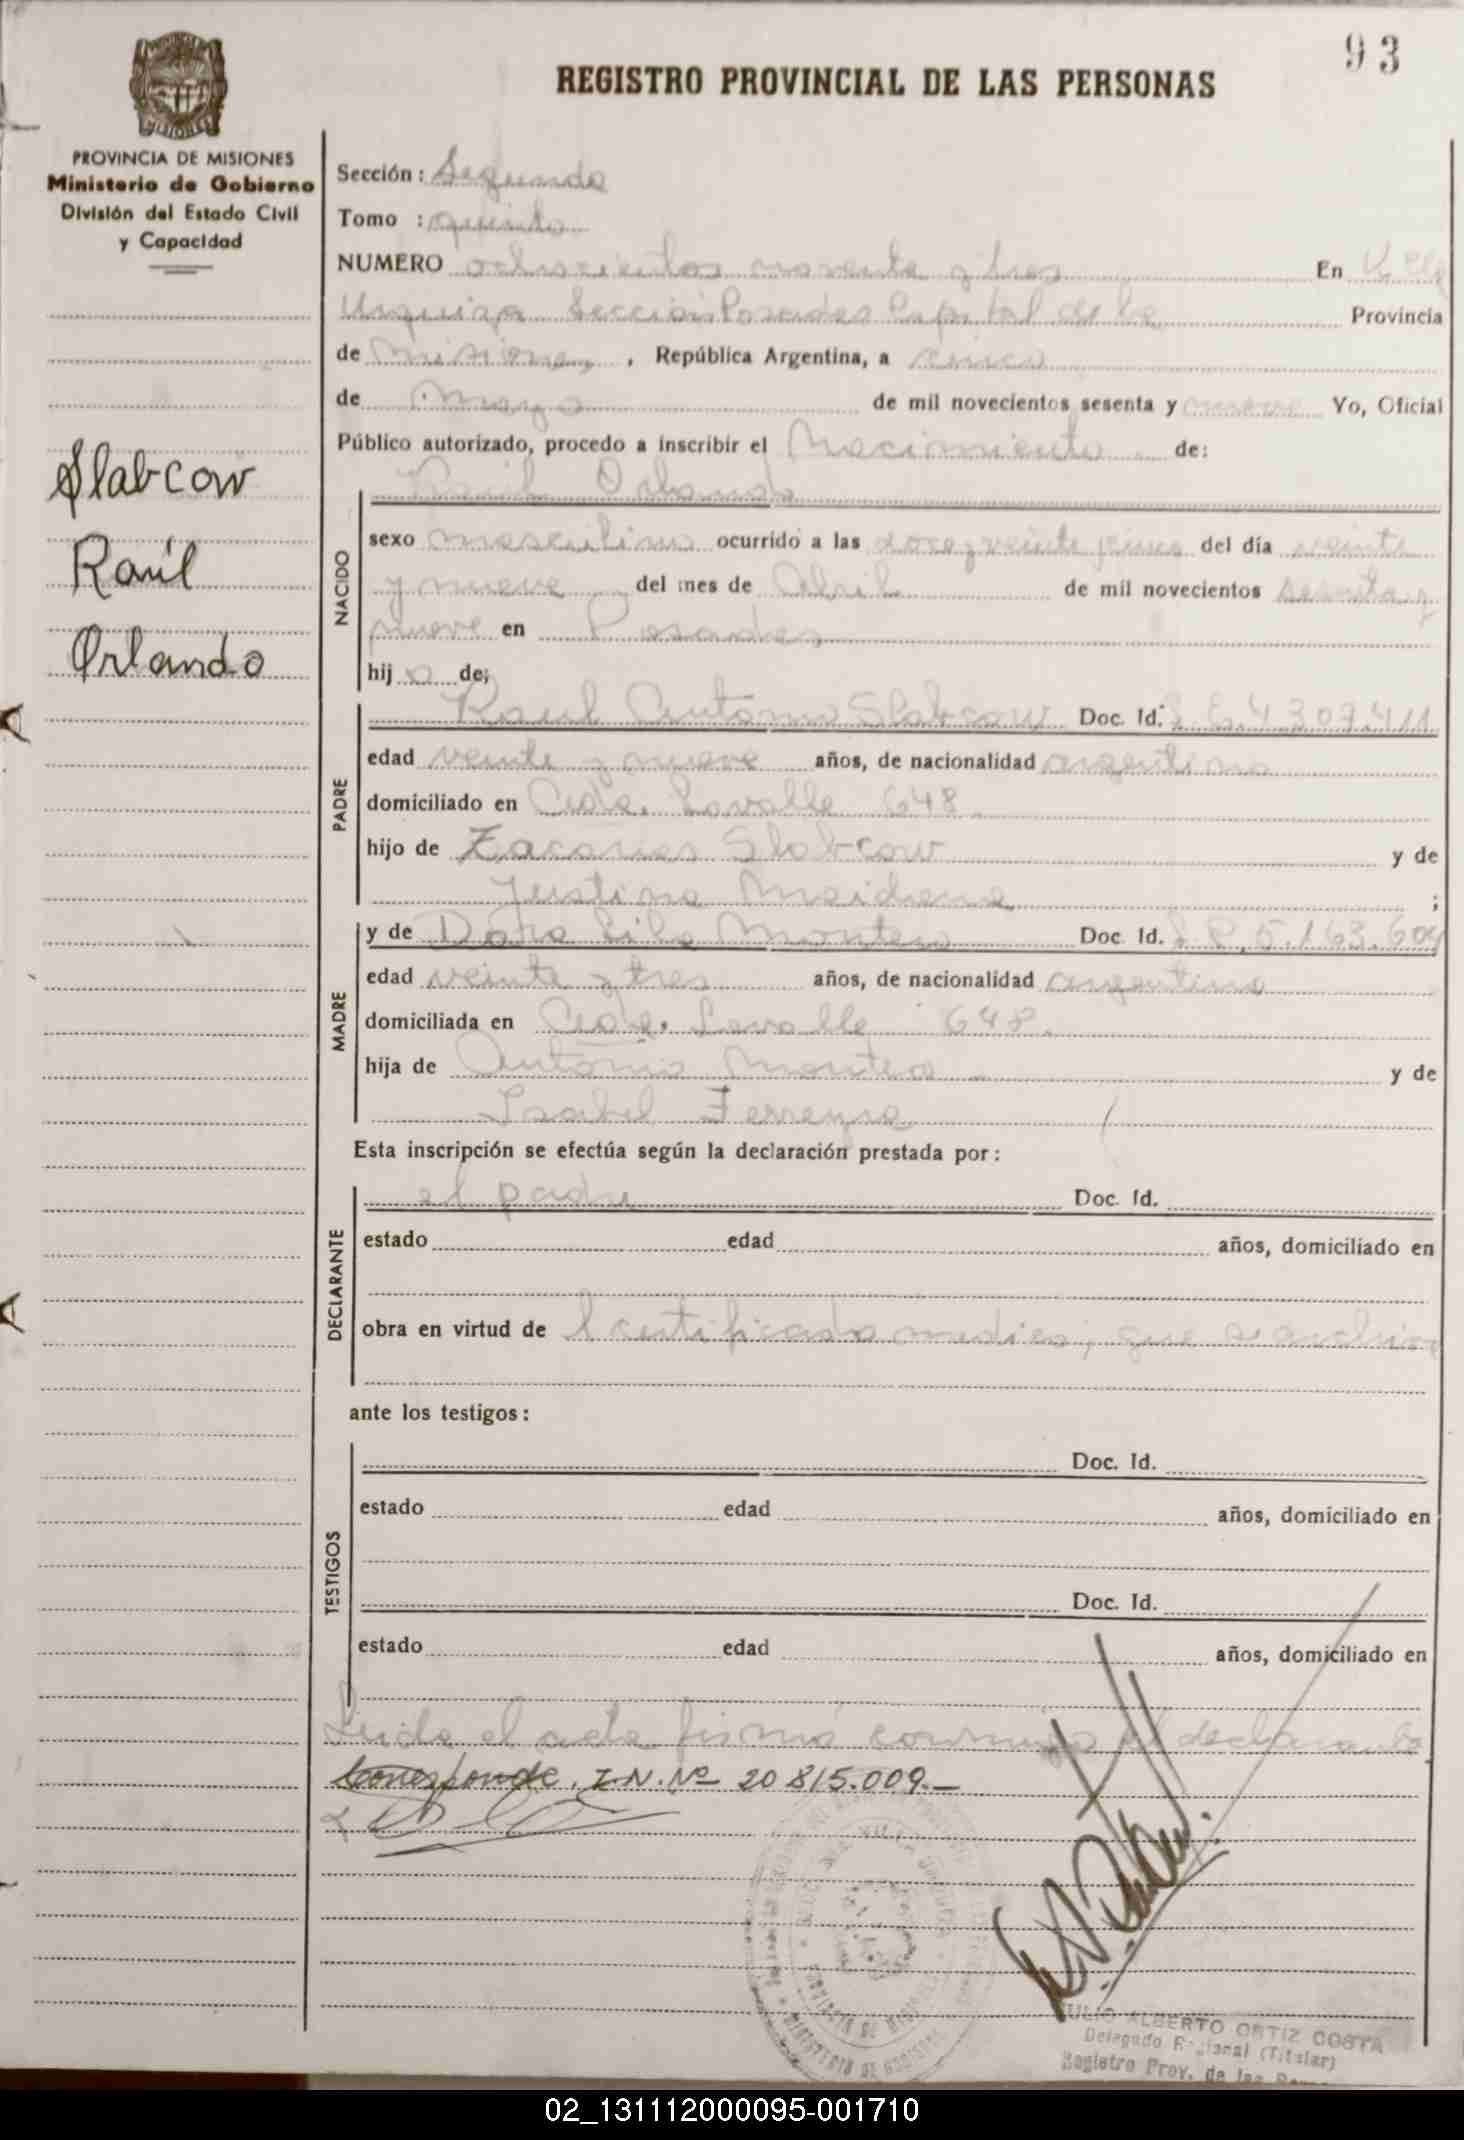 93
REGISTRO PROVINCIAL DE LAS PERSONAS
PROVINCIA DE MISIONES
Ministerio de Gobierno
División del Estado Civil
y Capacidad
Slabcow
Raúl
Orlando
Sección: Segunda
Tomo : quinto
NUMERO ochocientos noventa y tres En Villa
Urquiza Sección Posadas Capital de la Provincia
de Misiones, República Argentina, a cinco
de Mayo de mil novecientos sesenta y nueve Yo, Oficial
Público autorizado, procedo a inscribir el Nacimiento de:
Raúl Orlando
NACIDO
sexo masculino ocurrido a las doce y veinte y cinco del día veinte
y nueve del mes de Abril de mil novecientos sesenta y
nueve en Posadas
hijo de;
PADRE
Raul Antonio Slabcow Doc. Id. 4309.411
edad veinte y nueve años, de nacionalidad argentina
domiciliado en Avda. Lavalle 648.
hijo de Zacarias Slabcow y de
Justina Maidana ;
MADRE
y de Dora Lila Montero Doc. Id. 5.163.604
edad veinte y tres años, de nacionalidad argentina
domiciliada en Avda. Lavalle 648.
hija de Antonio Montero y de
Isabel Ferreyra
Esta inscripción se efectúa según la declaración prestada por:
DECLARANTE
el padre Doc. Id.
estado edad años, domiciliado en
obra en virtud del certificado medico, que se archiva
ante los testigos:
TESTIGOS
Doc. Id.
estado edad años, domiciliado en
Doc. Id.
estado edad años, domiciliado en
Leida el acta firmó conmigo el declarante
Corresponde. I.N. Nº 20 815.009.—
JULIO ALBERTO ORTIZ COSTA
Delegado Regional (Titular)
Registro Prov. de las
02_131112000095-001710